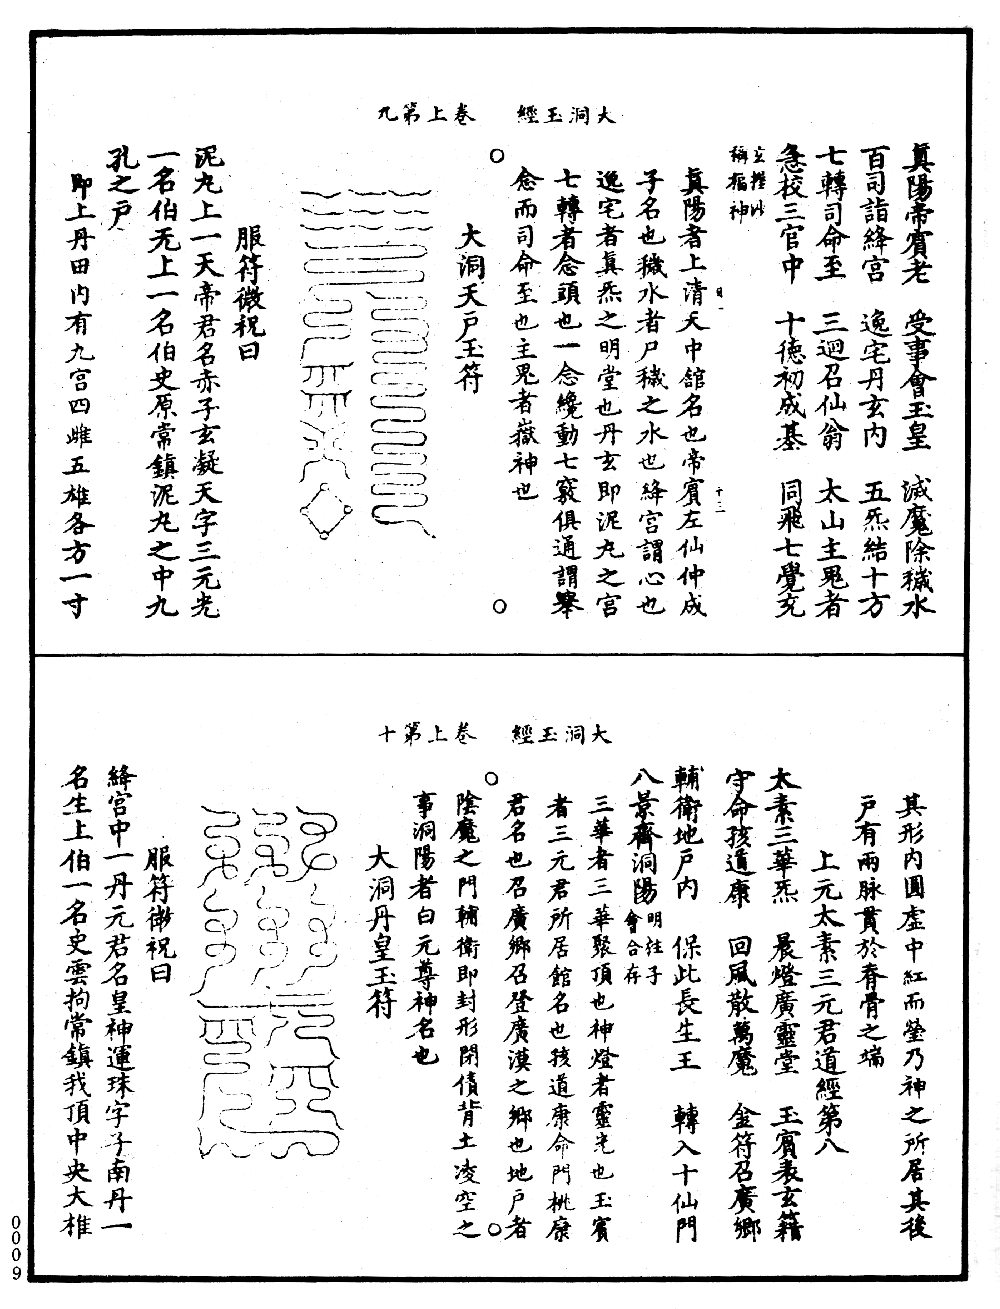 大洞玉經　卷上第九
眞陽帝賓老　受事會玉皇　滅魔除穢水
百司詣絳宮　逸宅丹玄内　五炁結十方
七轉司命至　三迴召仙翁　太山主鬼者
急校三官中　十德初成基　同飛七覺充
稱招神
眞陽者上清天中舘名也帝賓左仙仲成
子名也穢水者尸穢之水也絳宮謂心也
逸宅者眞炁之明堂也丹玄即泥丸之宮
七轉者念頭也一念纔動七竅俱通謂舉
念而司命至也主鬼者嶽神也
大洞天戸玉符
服符微祝曰
泥丸上一天帝君名赤子玄凝天字三元先
一名伯无上一名伯史原常鎮泥丸之中九
孔之戸
即上丹田内有九宮四雌五雄各方一寸
大洞玉經　卷上第十
其形内圓虛中紅而瑩乃神之所居其後
戸有兩脉貫於脊骨之端
上元太素三元君道經第八
太素三華炁　晨燈廣靈堂　玉賓表玄籍
守命孩道康　回風散萬魔　金符召廣鄉
輔衛地戸内　保此長生王　轉入十仙門
八景齊洞陽 明往子會合存
三華者三華聚頂也神燈者靈光也玉賓
者三元君所居館名也孩道康命門桃康
君名也召廣鄉召登廣漠之鄉也地戸者
陰魔之門輔衛即封形閉債背土凌空之
事洞陽者白元尊神名也
大洞丹皇玉符
服符微祝曰
絳宮中一丹元君名皇神運珠字子南丹一
名生上伯一名史雲拘常鎮我頂中央大椎
0009